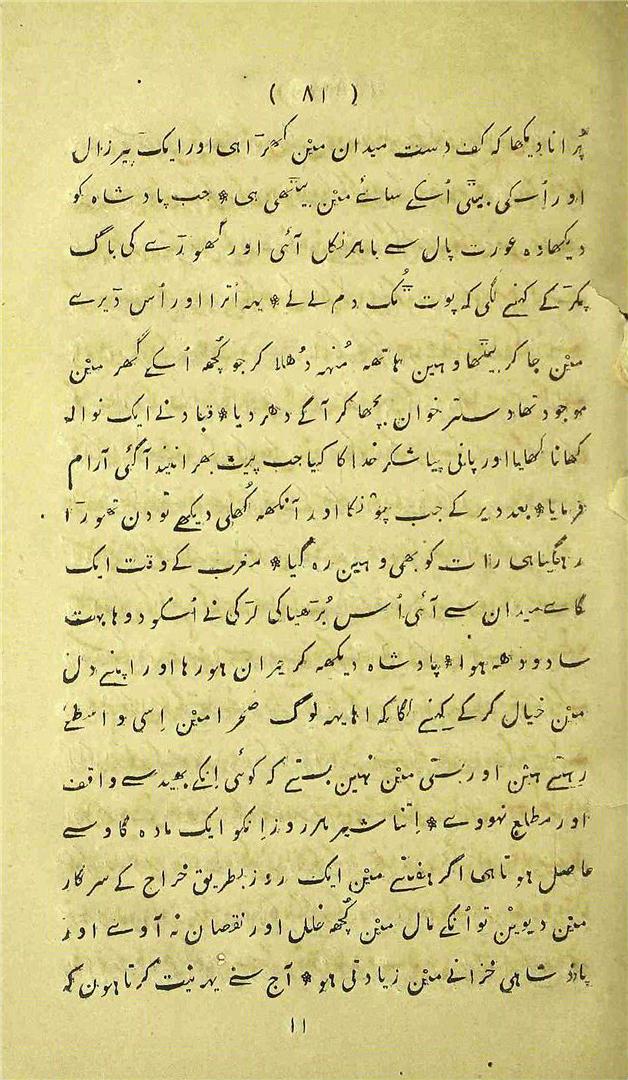 ( ۸۱ )
پُرانا دیکھا کہ کف دست میدان میٛن کھڑا ہی اور ایک پیرزال
اور اُس کی بیٹی اُسکے سائے میٛن بیٹھی ہی * جب پادشاہ کو
دیکھا وہ عورت پال سے باہر نکل آئی اور گھوڑے کی باگ
پکڑ کے کہنے لگی کہ پوت ٹُک دم لے لے * یہہ اُترا اور اُس ڈیرے
میٛن جا کر بیٹھا وہین ہاتھہ مُنہہ دُھلا کر جو کُچھہ اُسکے گھر میٛن
موجود تھا دسترخوان بچھا کر آگے دھر دیا * قباد نے ایک نوالہ
کھانا کھایا اور پانی پیا شکر خدا کا کیا جب پیٹ بھرا نیند آگئی آرام
فرمایا * بعد دیر کے جب چونکا اور آنکھہ کُھلی دیکھے تو دن تھوڑا
رہگیا ہی رات کو بھی وہین رہ گیا * مغرب کے وقت ایک
گاے میدان سے آئی اُس بُڑھیا کی لڑکی نے اُسکو دوہا بہت
سا دودھہ ہوا * پادشاہ دیکھہ کر حیران ہو رہا اور اپنے دل
میٛن خیال کر کے کہنے لگا کہ اہا یہہ لوگ صحرا میٛن اِسی واسطے
رہتے ہیٛن اور بستی میٛن نہین بستے کہ کوئی اِنکے بھید سے واقف
اور مطلع نہووے * اِتنا شیر ہر روز اِنکو ایک مادہ گاو سے
حاصل ہوتا ہی اگر ہفتے میٛن ایک روز بطریق خراج کے سرکار
میٛن دیویٛن تو اُنکے مال میٛن کُچھہ خلل اور نقصان نہ آوے اور
پادشاہی خزانے میٛن زیادتی ہو * آج سے یہہ نیت کرتا ہون کہ
۱۱